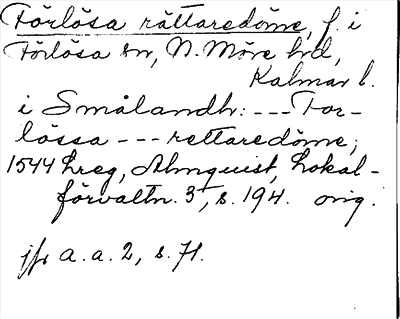 Förlösa rättaredöme, f. i
Förlösa sn, N. Möre hd,
Kalmar l.
i Smålandh: --- For-
lössa --- rettaredöme;
1544 hreg, Almquist, Lokal-
förvaltn. 3, s. 194. orig.
jfr a. a. 2, s. 71.